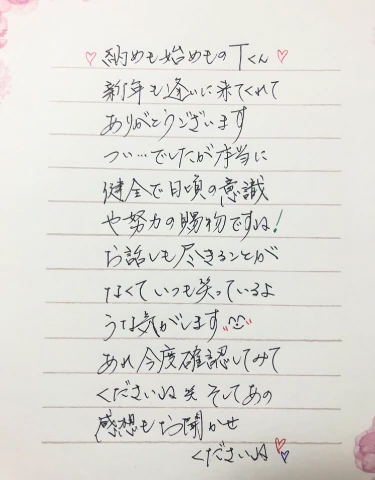 ♡納めも始めものTくん♡
新年も逢いに来てくれて
ありがとうございます
つい…でしたが本当に
健全で日頃の意識
や努力の賜物ですね!
お話しも尽きることが
なくていつも笑っているよ
うな気がします
あれ今度確認してみて
くださいね笑 そしてあの
感想もお聞かせ
くださいね♡♡